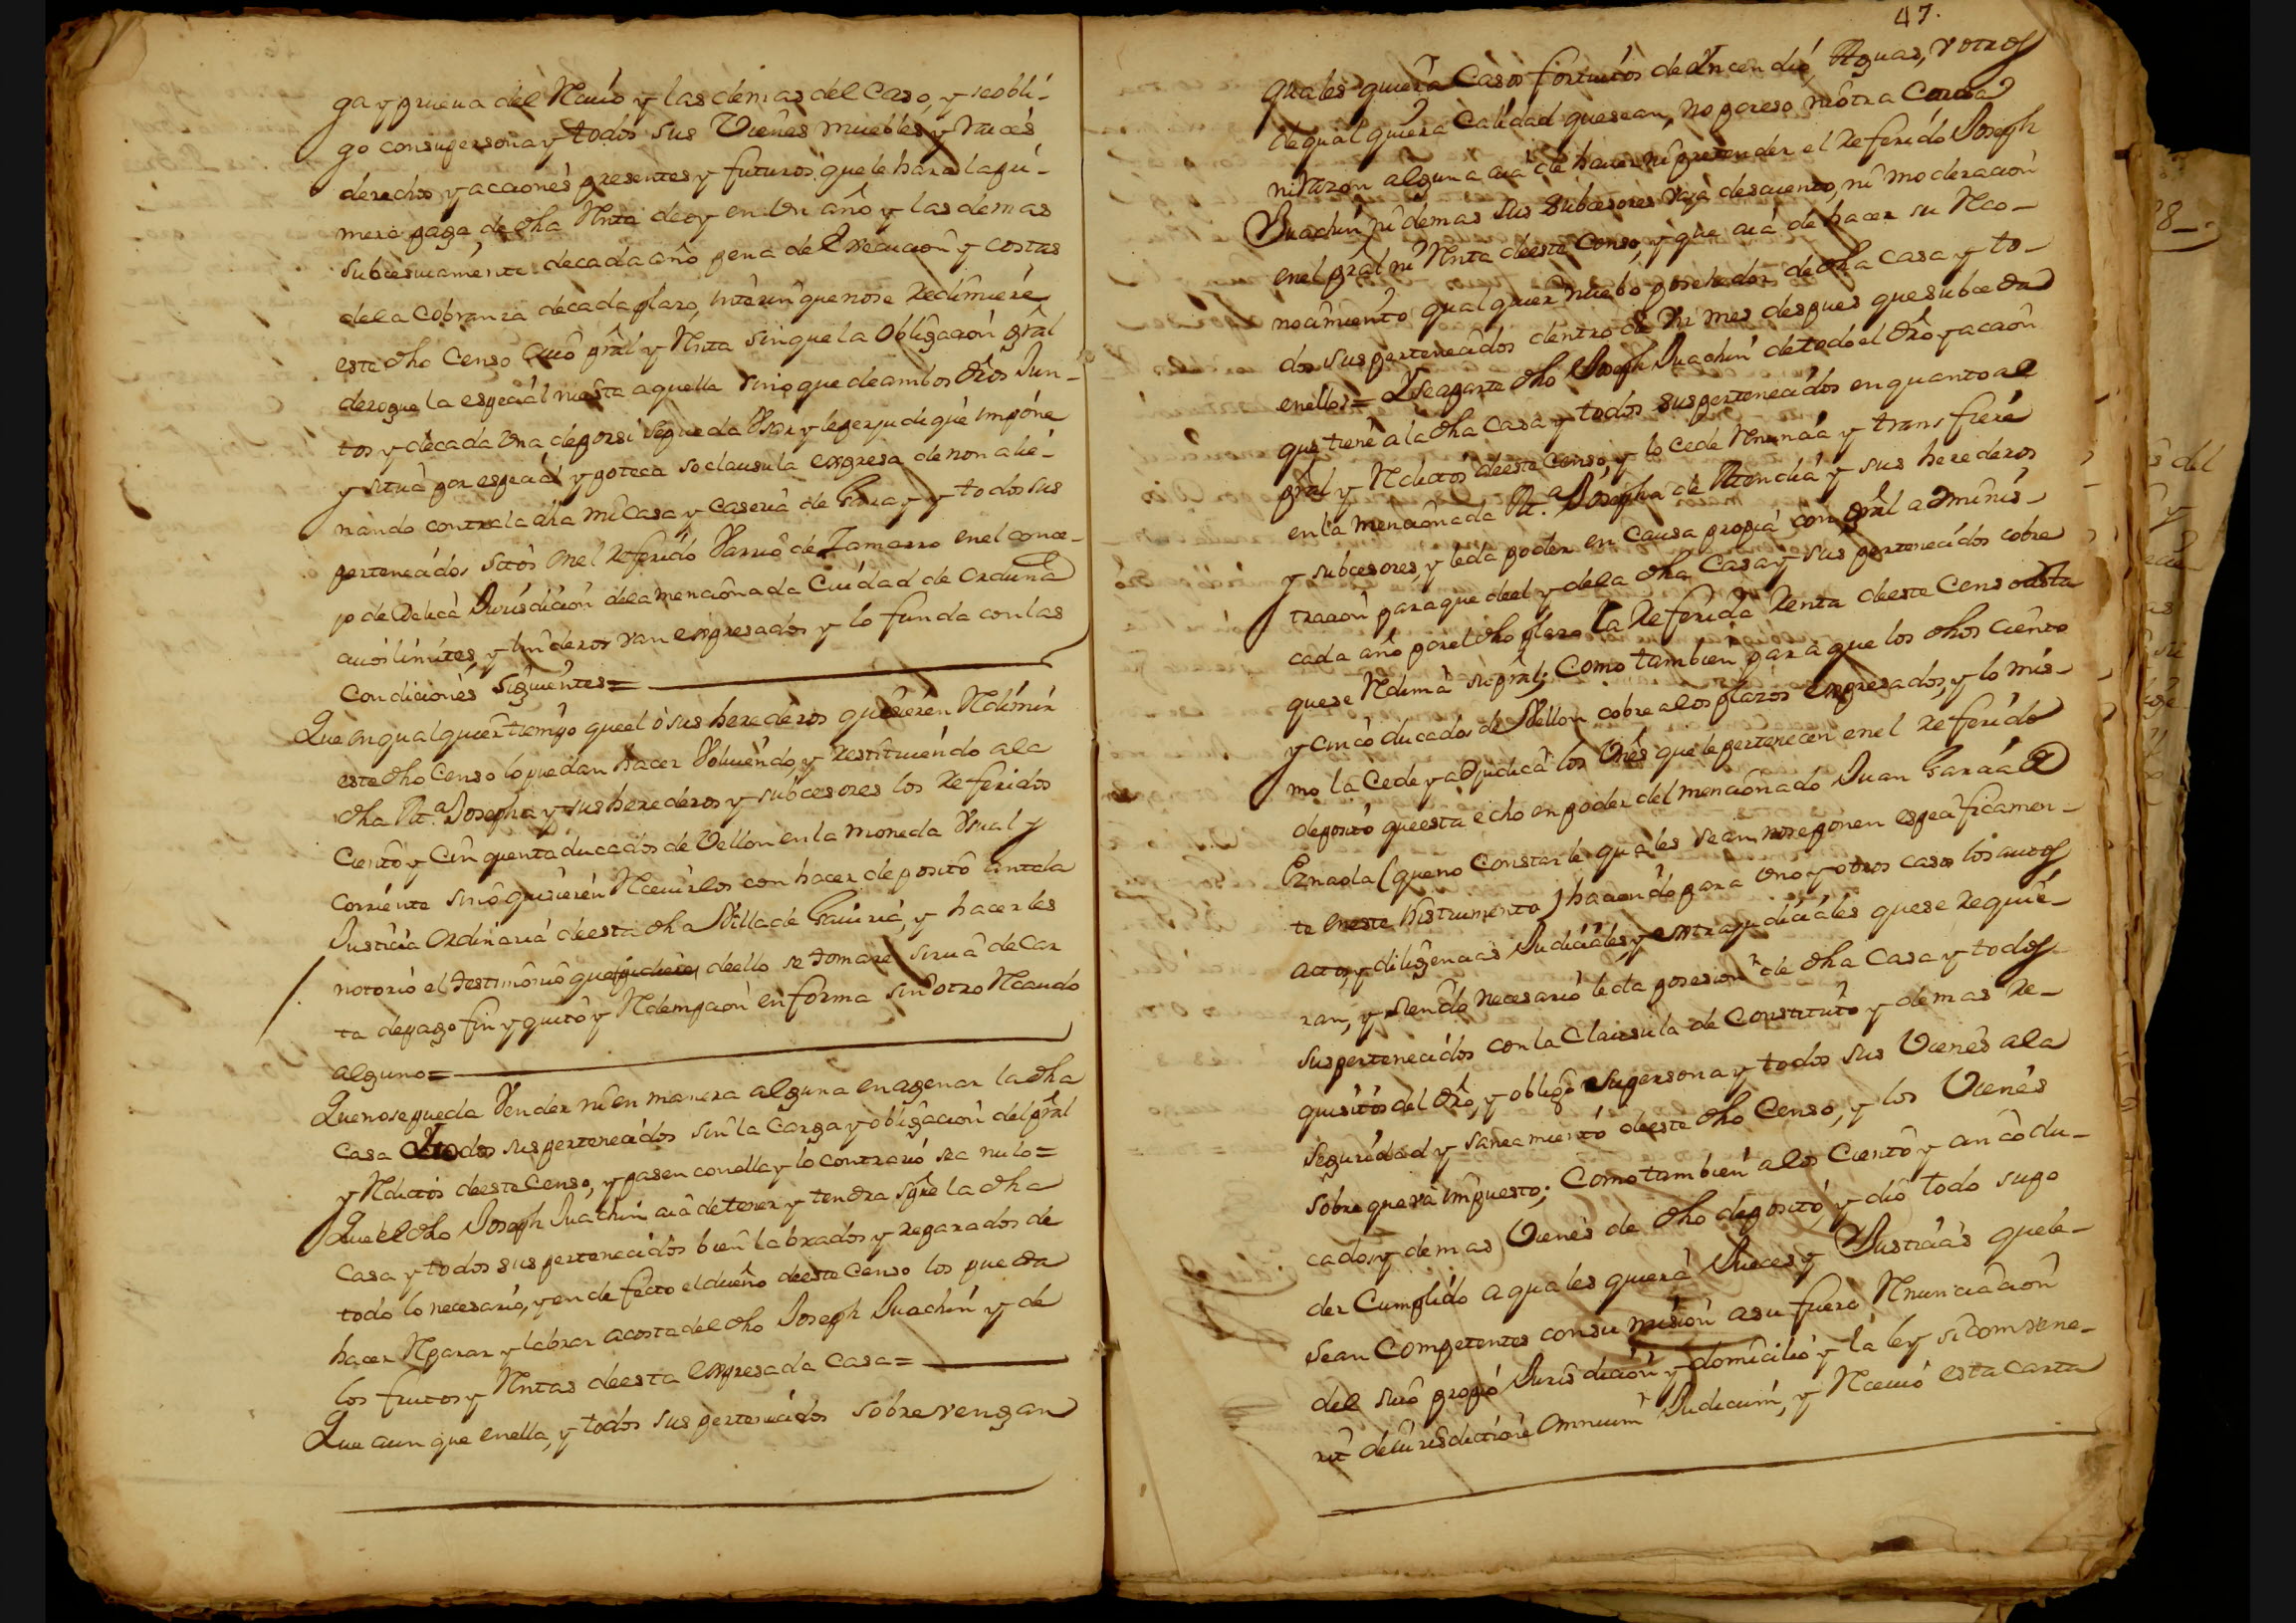 ga y prueua del Reciuo y las demas del Caso, y se obli-
go con su persona y todos sus Vienes muebles y raices
derechos y acciones presentes y futuros que le hara la pri-
mera paga de dha Renta de oy en Un año y las demas
subcesiuamente de cada año pena de Execucion y costas
de la Cobranza de cada plazo, interin que no se redimiere
este dho Censo su pral y Renta sin que la Obligacion gral
derogue la especial ni esta a aquella sino que de ambos dros Jun-
tos y de cada Una de por si se pueda Usar y le perjudique impone
y situa por especial ypoteca so clausula expresa de non alie-
nando contra la dha mi Casa y Caseria de y todos sus
pertenecidos sitos en el referido Varrio de Zamarro en el conce-
jo de Delica Jurisdicion de la mencionada Ciudad de Orduña
cuios limites, y linderos van expresados y lo funda con las
Condiciones Siguientes=
Que en qualquier tiempo que el o sus herederos quisieren Redimir
este dho Censo lo puedan hacer Voluiendo y restituiendo a la
dha Mª Josepha y sus herederos y subcesores los referidos
Ciento y Cinquenta ducados de Vellon en la moneda Usual y
Corriente si no quisieren Reciuirlos con hacer deposito ante la
Justicia Ordinaria de esta dha Villa de Gauiria, y hacerles
notorio el testimonio que de ello se tomare sirua de Car
ta de pago fin y quito y Redempcion en forma sin otro Recaudo
alguno=
Que no se pueda Vender ni en manera alguna enagenar la dha
Casa Y todos sus pertenecidos sin la Carga y obligacion del pral
y Reditos de este Censo, y pasen con ella y lo contrario sea nulo=
Que el dho Joseph Juachin aia de tener y tendra spre la dha
Casa y todos sus pertenecidos bien labrados y reparados de
todo lo necesario, y en defecto el dueño de este Censo los pueda
hacer Reparar y labrar a costa del dho Joseph Juachin y de
los frutos y Rentas de esta expresada Casa=
Que aun que en ella, y todos sus pertenecidos sobrevengan
47.
quales quiera Casos fortuitos de Yncendio, Aguas, y otros
de qual quiera Calidad que sean, no por eso ni otra Causa
ni razon alguna aia de hacer ni pretender el referido Joseph
Juachin ni demas sus subcesores vaja descuento, ni moderacion
en el pral ni Renta de este Censo, y que aia de hacer su Reco-
nocimiento qualquier nuebo posehedor de dha Casa y to-
dos sus pertenecidos dentro de Un mes despues que subceda
en ellos= Y se aparte dho Joseph Juachin de todo el dro y accion
que tiene a la dha Casa y todos sus pertenecidos en quanto al
pral y Reditos de este Censo, y lo cede Renuncia y transfiere
en la mencionada Mª Josepha de Atencha y sus herederos
y subcesores, y le da poder en Causa propia con gral adminis-
tracion para que de el y de la dha Casa y sus pertenecidos cobre
cada año por el dho plazo la referida renta de este Censo asta
que se Redima su pral; Como tambien para que los dhos Ciento
y cinco ducados de Vellon cobre a los plazos expresados, y lo mis-
mo la Cede y adjudica los Vnes que le pertenecen en el referido
deposito que esta echo en poder del mencionado Juan Garcia de
Eznaola (que no Constarle quales sean no se ponen especificamen-
te en este Ynstrumento) haciendo para Uno y otros casos los autos
actos, y diligencias Judiciales, y extrajudiciales que se requie-
ran, y siendo necesario le da posesion de dha Casa y todos
sus pertenecidos con la Clausula de Constituto y demas re-
quisitos del dro, y obligo su persona y todos sus Vienes a la
Seguridad y saneamiento de este dho Censo, y los Vienes
Sobre que va impuesto; Como tambien a los Ciento y cinco du-
cados y demas Vienes de dho deposito, y dio todo su po
der Cumplido a quales quiera Jueces y Justicias que le-
sean Competentes con su mision a su fuero Renunciacion
del suio propio Jurisdicion y domicilio y la ley si combene-
rit de iurisdictione Omnium Judicum, y Reciuio esta Carta